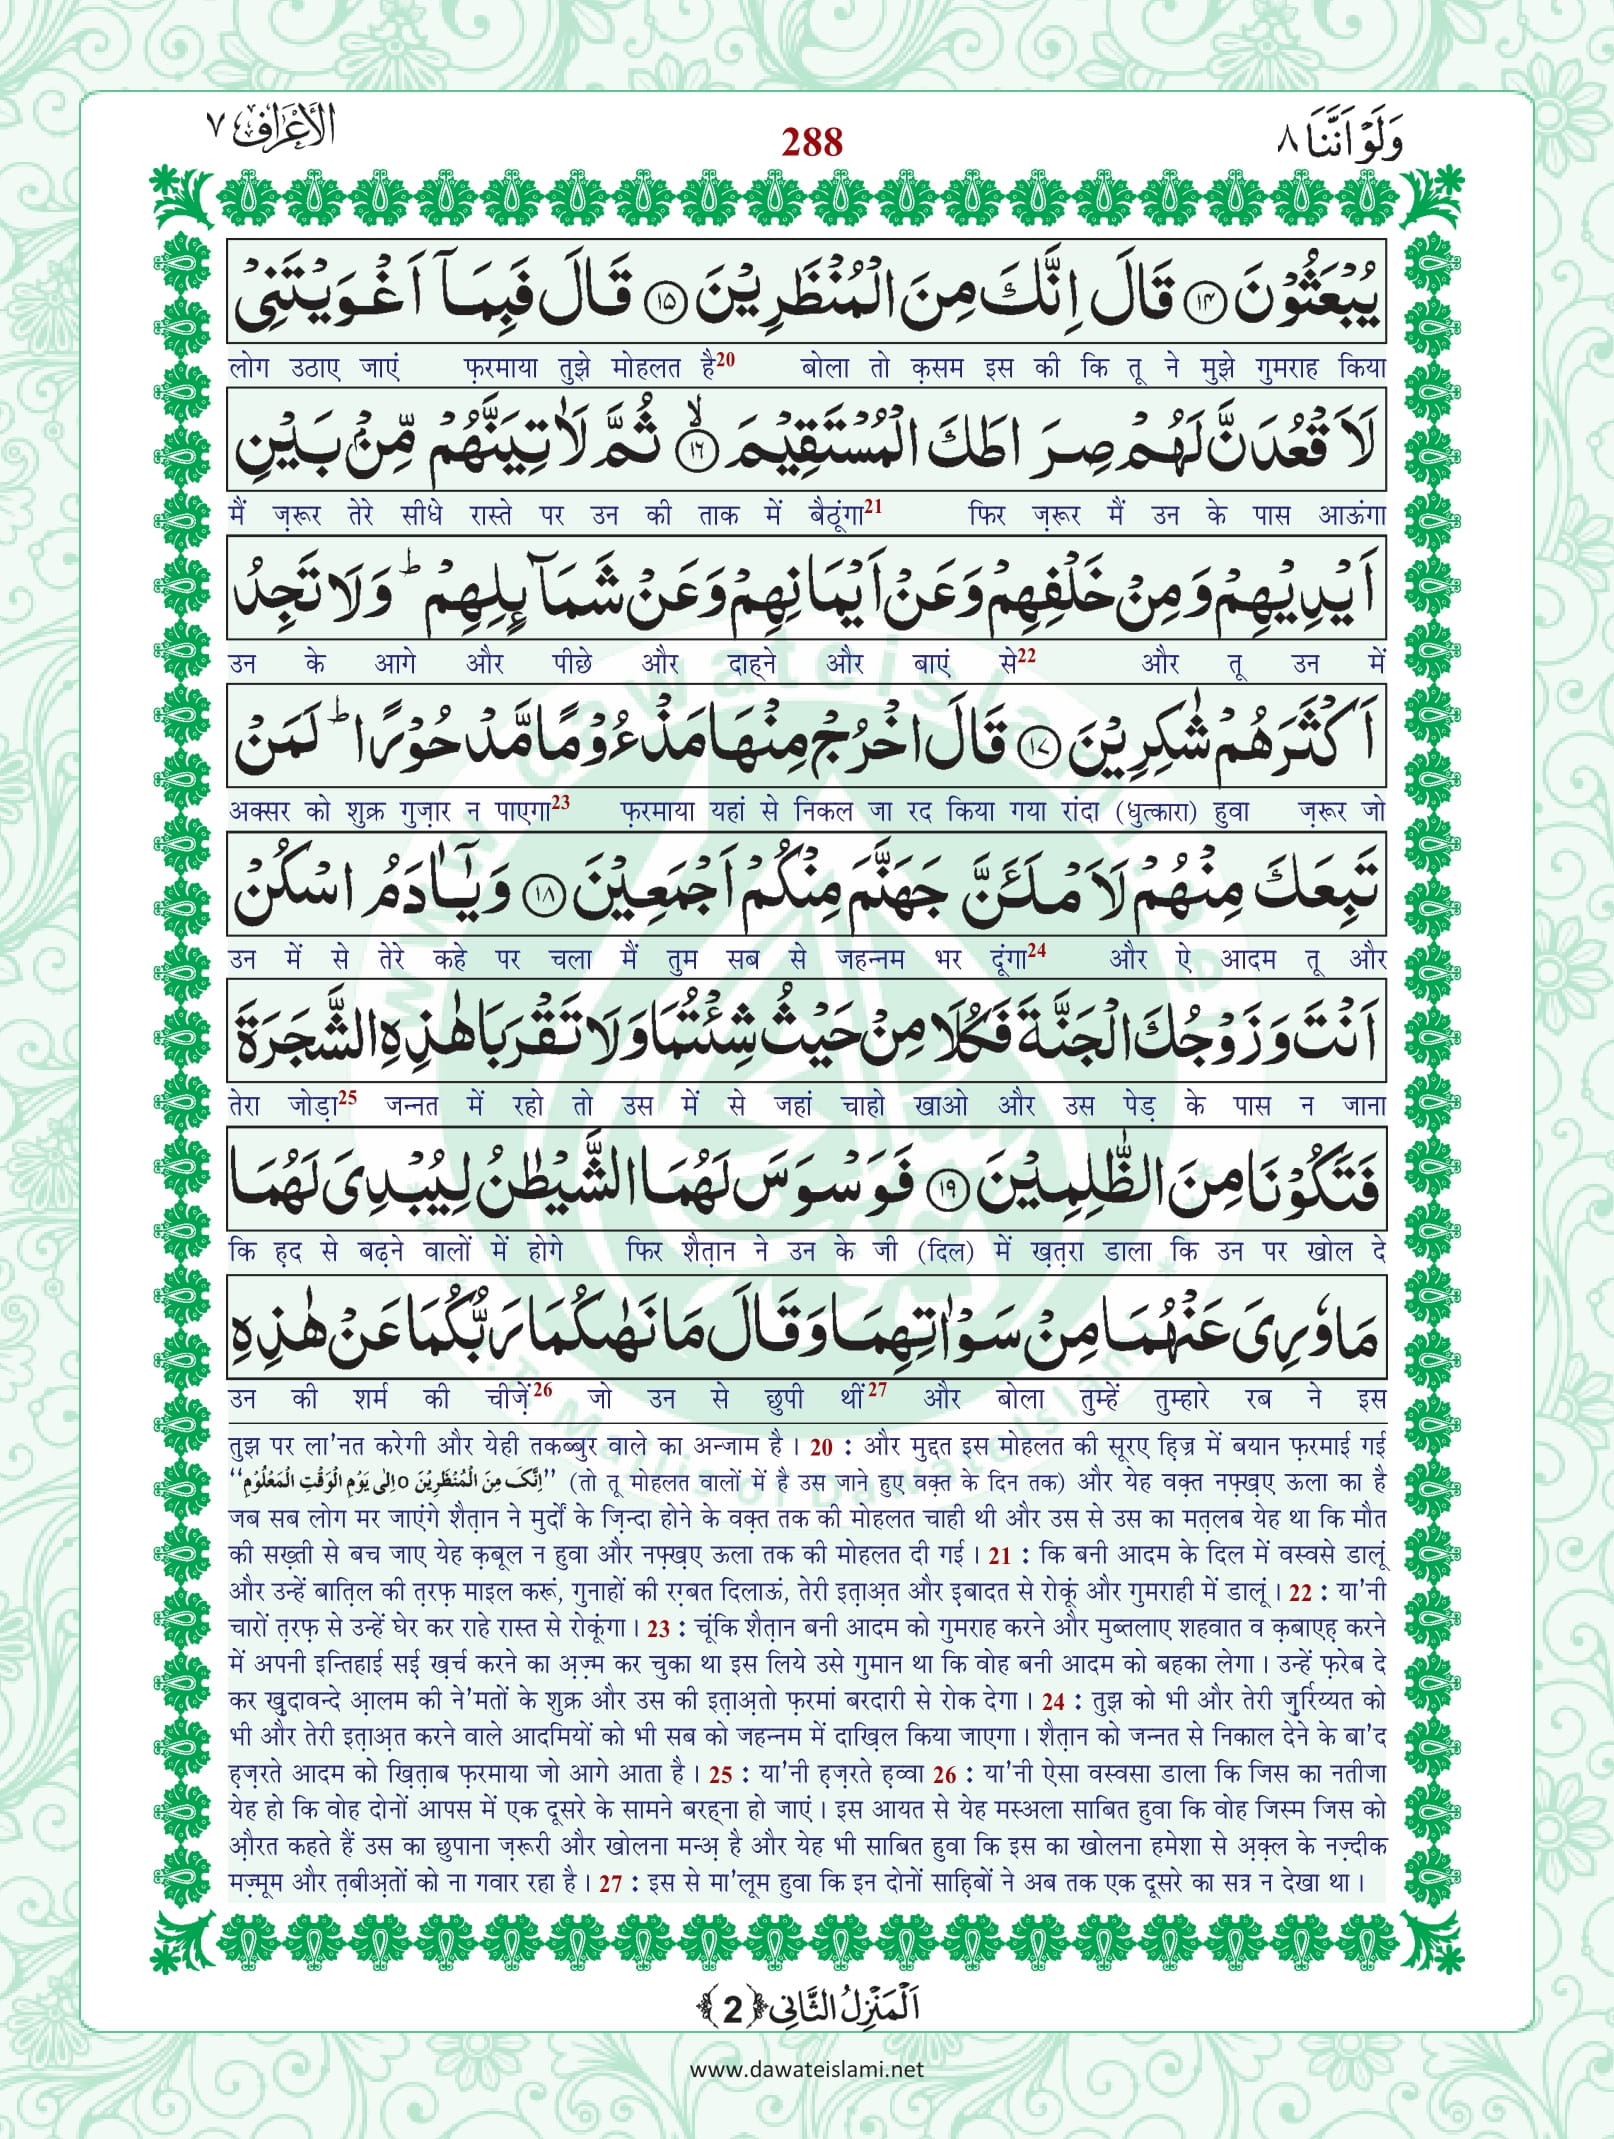 وَلَوْ اَنَّنَا ٨
288
الْاَعْرَاف ٧
يُبْعَثُوْنَ ﴿۱۴﴾ قَالَ اِنَّكَ مِنَ الْمُنْظَرِيْنَ ﴿۱۵﴾ قَالَ فَبِمَاۤ اَغْوَيْتَنِيْ
लोग उठाए जाएं फ़रमाया तुझे मोहलत है20 बोला तो क़सम इस की कि तू ने मुझे गुमराह किया
لَاَقْعُدَنَّ لَهُمْ صِرَاطَكَ الْمُسْتَقِيْمَ ﴿۱۶﴾ۙ ثُمَّ لَاٰتِيَنَّهُمْ مِّنْۢ بَيْنِ
मैं ज़रूर तेरे सीधे रास्ते पर उन की ताक में बैठूंगा21 फिर ज़रूर मैं उन के पास आऊंगा
اَيْدِيْهِمْ وَمِنْ خَلْفِهِمْ وَعَنْ اَيْمَانِهِمْ وَعَنْ شَمَآئِلِهِمْ ؕ وَلَا تَجِدُ
उन के आगे और पीछे और दाहने और बाएं से22 और तू उन में
اَكْثَرَهُمْ شٰكِرِيْنَ ﴿۱۷﴾ قَالَ اخْرُجْ مِنْهَا مَذْءُوْمًا مَّدْحُوْرًا ؕ لَمَنْ
अक्सर को शुक्र गुज़ार न पाएगा23 फ़रमाया यहां से निकल जा रद किया गया रांदा (धुत्कारा) हुवा ज़रूर जो
تَبِعَكَ مِنْهُمْ لَاَمْلَـَٔنَّ جَهَنَّمَ مِنْكُمْ اَجْمَعِيْنَ ﴿۱۸﴾ وَيٰۤاٰدَمُ اسْكُنْ
उन में से तेरे कहे पर चला मैं तुम सब से जहन्नम भर दूंगा24 और ऐ आदम तू और
اَنْتَ وَزَوْجُكَ الْجَنَّةَ فَكُلَا مِنْ حَيْثُ شِئْتُمَا وَلَا تَقْرَبَا هٰذِهِ الشَّجَرَةَ
तेरा जोड़ा25 जन्नत में रहो तो उस में से जहां चाहो खाओ और उस पेड़ के पास न जाना
فَتَكُوْنَا مِنَ الظّٰلِمِيْنَ ﴿۱۹﴾ فَوَسْوَسَ لَهُمَا الشَّيْطٰنُ لِيُبْدِيَ لَهُمَا
कि ह़द से बढ़ने वालों में होगे फिर शैत़ान ने उन के जी (दिल) में ख़त़रा डाला कि उन पर खोल दे
مَا وٗرِيَ عَنْهُمَا مِنْ سَوْاٰتِهِمَا وَقَالَ مَا نَهٰىكُمَا رَبُّكُمَا عَنْ هٰذِهِ
उन की शर्म की चीज़ें26 जो उन से छुपी थीं27 और बोला तुम्हें तुम्हारे रब ने इस
तुझ पर ला'नत करेगी और येही तकब्बुर वाले का अन्जाम है। 20 : और मुद्दत इस मोहलत की सूरए ह़िज्र में बयान फ़रमाई गई
‘‘اِنَّکَ مِنَ الْمُنْظَرِيْنَ o اِلٰی يَوْمِ الْوَقْتِ الْمَعْلُوْمِ’’ (तो तू मोहलत वालों में है उस जाने हुए वक़्त के दिन तक) और येह वक़्त नफ़्ख़ए ऊला का है
जब सब लोग मर जाएंगे शैत़ान ने मुर्दों के ज़िन्दा होने के वक़्त तक की मोहलत चाही थी और उस से उस का मत़लब येह था कि मौत
की सख़्ती से बच जाए येह क़बूल न हुवा और नफ़्ख़ए ऊला तक की मोहलत दी गई। 21 : कि बनी आदम के दिल में वस्वसे डालूं
और उन्हें बात़िल की त़रफ़ माइल करूं, गुनाहों की रग़्बत दिलाऊं, तेरी इत़ाअ़त और इबादत से रोकूं और गुमराही में डालूं। 22 : या'नी
चारों त़रफ़ से उन्हें घेर कर राहे रास्त से रोकूंगा। 23 : चूंकि शैत़ान बनी आदम को गुमराह करने और मुब्तलाए शहवात व क़बाएह़ करने
में अपनी इन्तिहाई सई ख़र्च करने का अ़ज़्म कर चुका था इस लिये उसे गुमान था कि वोह बनी आदम को बहका लेगा। उन्हें फ़रेब दे
कर ख़ुदावन्दे आ़लम की ने'मतों के शुक्र और उस की इत़ाअ़तो फ़रमां बरदारी से रोक देगा। 24 : तुझ को भी और तेरी ज़ुर्रिय्यत को
भी और तेरी इत़ाअ़त करने वाले आदमियों को भी सब को जहन्नम में दाख़िल किया जाएगा। शैत़ान को जन्नत से निकाल देने के बा'द
ह़ज़रते आदम को ख़ित़ाब फ़रमाया जो आगे आता है। 25 : या'नी ह़ज़रते ह़व्वा 26 : या'नी ऐसा वस्वसा डाला कि जिस का नतीजा
येह हो कि वोह दोनों आपस में एक दूसरे के सामने बरह्ना हो जाएं। इस आयत से येह मस्अला साबित हुवा कि वोह जिस्म जिस को
औ़रत कहते हैं उस का छुपाना ज़रूरी और खोलना मन्अ़ है और येह भी साबित हुवा कि इस का खोलना हमेशा से अ़क़्ल के नज़्दीक
मज़्मूम और त़बीअ़तों को ना गवार रहा है। 27 : इस से मा'लूम हुवा कि इन दोनों साह़िबों ने अब तक एक दूसरे का सत्र न देखा था।
اَلْمَنْزِلُ الثَّانِي ﴿2﴾
www.dawateislami.net